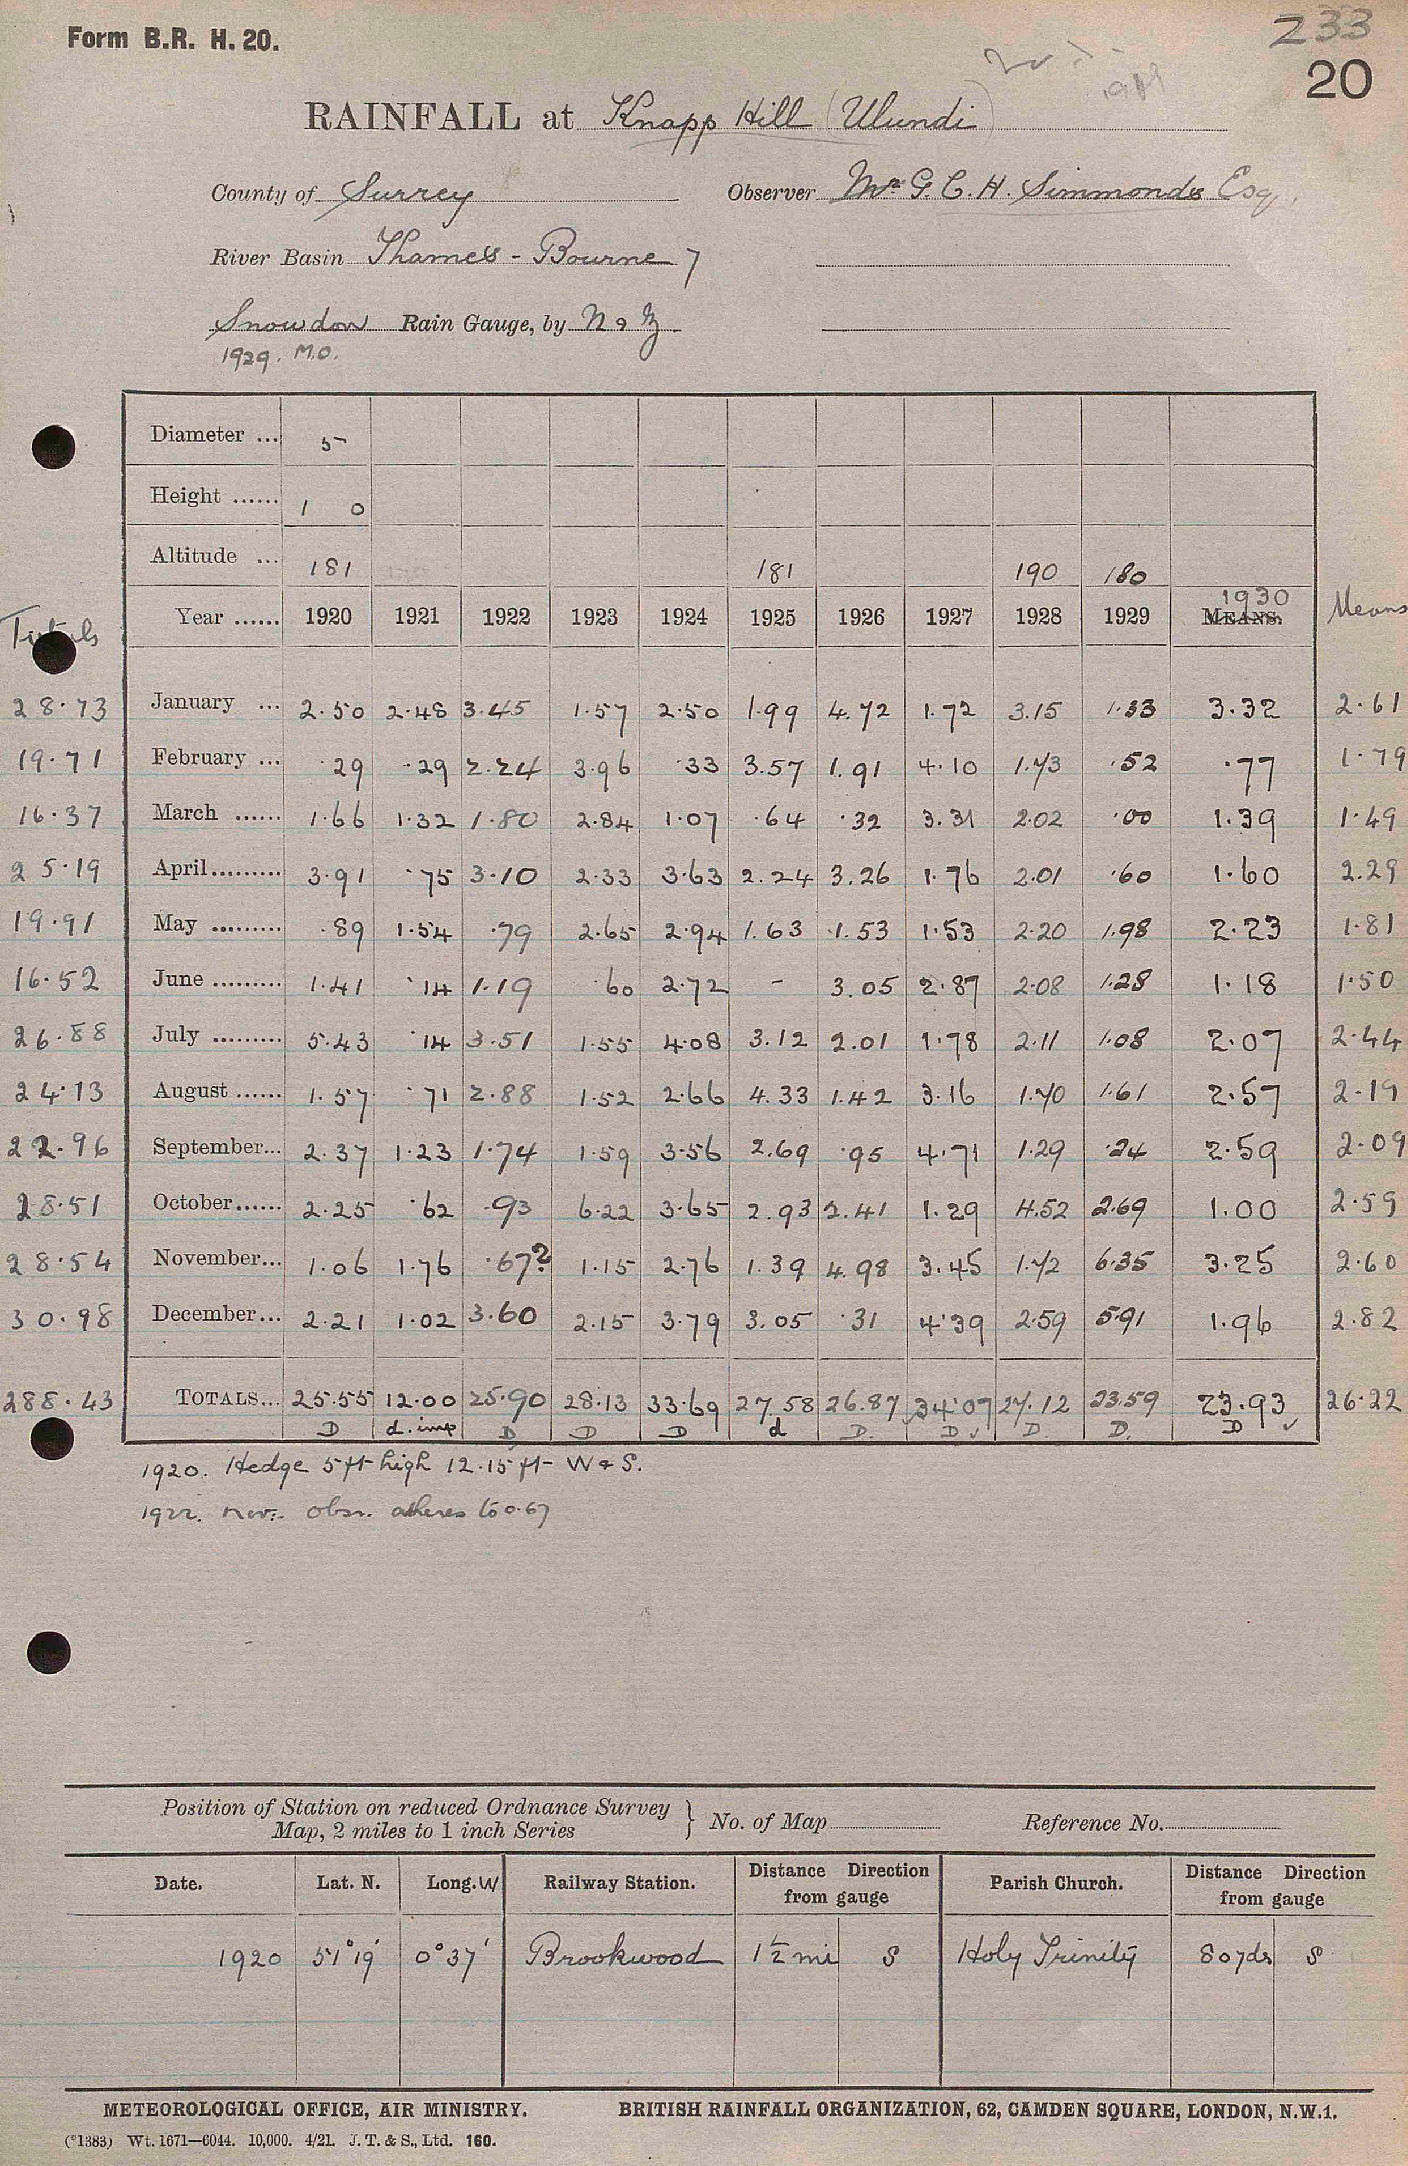 Form B.R. H. 20.
233
20
1919
RAINFALL at Knapp Hill (Ulundi)
County of Surrey Observer Mr G. C. H. Simmonds Esq.
River Basin Thames - Bourne 7
Snowdon Rain Gauge, by N & Z
1929. M.O.
Diameter ... 5
Height ...... 1 0
Altitude ... 181 181 190 180
Totals Year ...... 1920 1921 1922 1923 1924 1925 1926 1927 1928 1929 1930 MEANS. Means
28.73 January ... 2.50 2.48 3.45 1.57 2.50 1.99 4.72 1.72 3.15 1.33 3.32 2.61
19.71 February ... .29 .29 2.24 3.96 .33 3.57 1.91 4.10 1.73 .52 .77 1.79
16.37 March ...... 1.66 1.32 1.80 2.84 1.07 .64 .32 3.31 2.02 .00 1.39 1.49
25.19 April......... 3.91 .75 3.10 2.33 3.63 2.24 3.26 1.76 2.01 .60 1.60 2.29
19.91 May ......... .89 1.54 .79 2.65 2.94 1.63 1.53 1.53 2.20 1.98 2.23 1.81
16.52 June ......... 1.41 .14 1.19 .60 2.72 - 3.05 2.87 2.08 1.28 1.18 1.50
26.88 July ......... 5.43 .14 3.51 1.55 4.08 3.12 2.01 1.78 2.11 1.08 2.07 2.44
24.13 August ...... 1.57 .71 2.88 1.52 2.66 4.33 1.42 3.16 1.70 1.61 2.57 2.19
22.96 September... 2.37 1.23 1.74 1.59 3.56 2.69 .95 4.71 1.29 .24 2.59 2.09
28.51 October...... 2.25 .62 .93 6.22 3.65 2.93 2.41 1.29 4.52 2.69 1.00 2.59
28.54 November... 1.06 1.76 .67? 1.15 2.76 1.39 4.98 3.45 1.72 6.35 3.25 2.60
30.98 December... 2.21 1.02 3.60 2.15 3.79 3.05 .31 4.39 2.59 5.91 1.96 2.82
288.43 TOTALS... 25.55 12.00 25.90 28.13 33.69 27.58 26.87 34.07 27.12 23.59 23.93 26.22
D d. imp D D D d D. D ✓ D. D. D ✓
1920. Hedge 5 ft high 12.15 ft W & S.
1922. Nov:- obsr. adheres to 0.67
Position of Station on reduced Ordnance Survey
Map, 2 miles to 1 inch Series } No. of Map Reference No.
Date. Lat. N. Long. W Railway Station. Distance Direction from gauge Parish Church. Distance Direction from gauge
1920 51°19' 0°37' Brookwood 1½ mi S Holy Trinity 80 yds S
METEOROLOGICAL OFFICE, AIR MINISTRY. BRITISH RAINFALL ORGANIZATION, 62, CAMDEN SQUARE, LONDON, N.W.1.
(*1383) Wt. 1671—6044. 10,000. 4/21. J. T. & S., Ltd. 160.